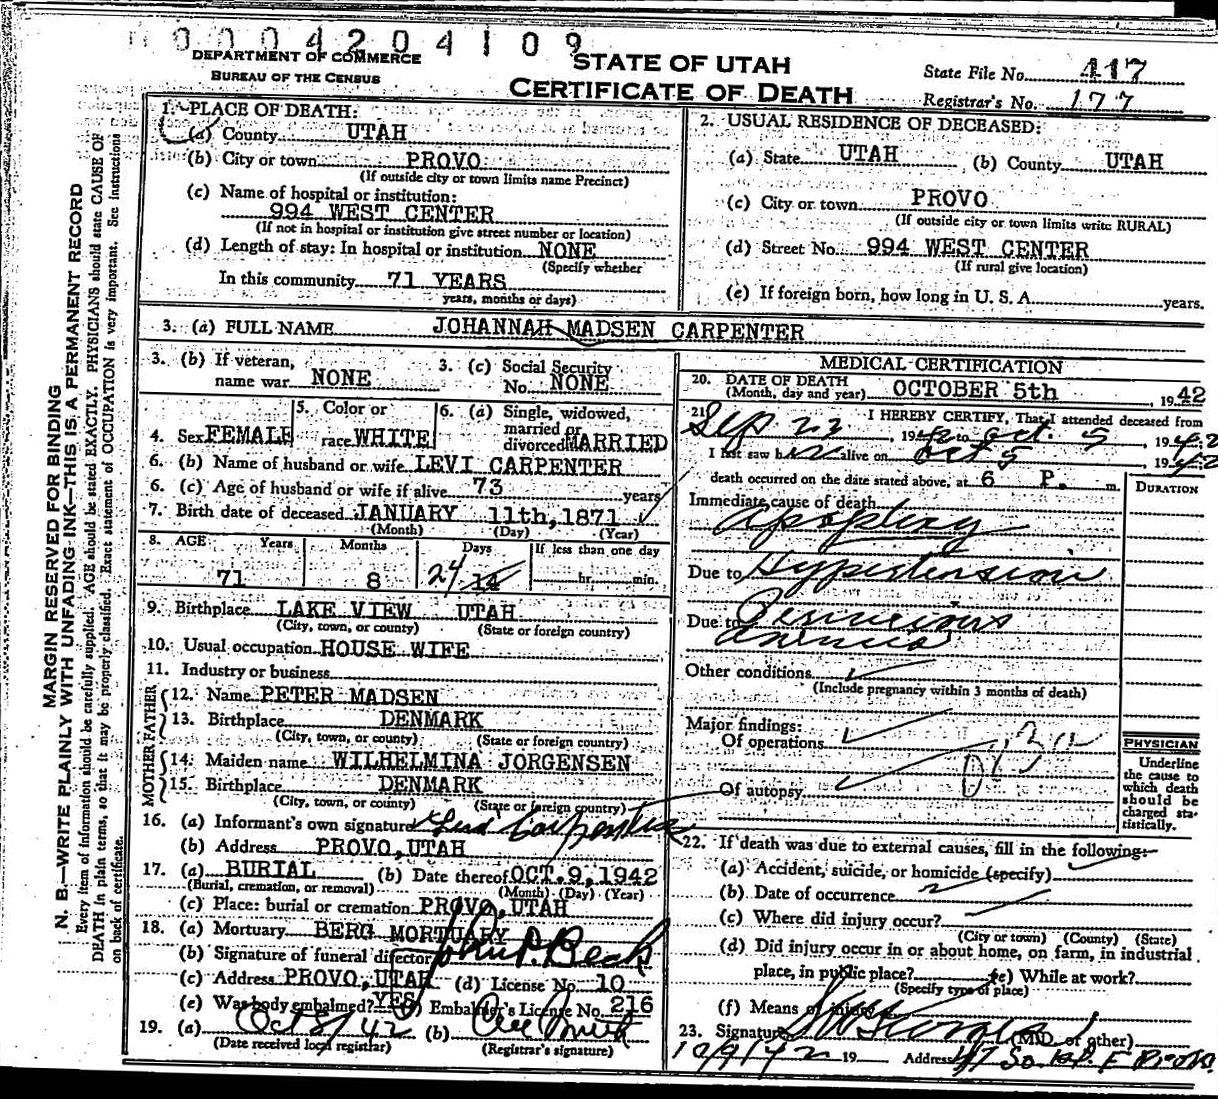 0004204109
DEPARTMENT OF COMMERCE
BUREAU OF THE CENSUS
STATE OF UTAH
CERTIFICATE OF DEATH
State File No. 417
Registrar's No. 177
MARGIN RESERVED FOR BINDING
N. B.—WRITE PLAINLY WITH UNFADING INK—THIS IS A PERMANENT RECORD
Every item of information should be carefully supplied. AGE should be stated EXACTLY. PHYSICIANS should state CAUSE OF
DEATH in plain terms, so that it may be properly classified. Exact statement of OCCUPATION is very important. See instructions
on back of certificate.
1. PLACE OF DEATH:
(a) County UTAH
(b) City or town PROVO
(If outside city or town limits name Precinct)
(c) Name of hospital or institution:
994 WEST CENTER
(If not in hospital or institution give street number or location)
(d) Length of stay: In hospital or institution NONE
(Specify whether
In this community 71 YEARS
years, months or days)
2. USUAL RESIDENCE OF DECEASED:
(a) State UTAH (b) County UTAH
(c) City or town PROVO
(If outside city or town limits write RURAL)
(d) Street No. 994 WEST CENTER
(If rural give location)
(e) If foreign born, how long in U. S. A. years.
3. (a) FULL NAME JOHANNAH MADSEN CARPENTER
3. (b) If veteran, name war NONE
3. (c) Social Security No. NONE
4. Sex FEMALE
5. Color or race WHITE
6. (a) Single, widowed, married or divorced MARRIED
6. (b) Name of husband or wife LEVI CARPENTER
6. (c) Age of husband or wife if alive 73 years
7. Birth date of deceased JANUARY 11th, 1871
(Month) (Day) (Year)
8. AGE Years Months Days If less than one day
71 8 24 14 hr. min.
9. Birthplace LAKE VIEW UTAH
(City, town, or county) (State or foreign country)
10. Usual occupation HOUSE WIFE
11. Industry or business
FATHER
12. Name PETER MADSEN
13. Birthplace DENMARK
(City, town, or county) (State or foreign country)
MOTHER
14. Maiden name WILHELMINA JORGENSEN
15. Birthplace DENMARK
(City, town, or county) (State or foreign country)
16. (a) Informant's own signature Levi Carpenter
(b) Address PROVO, UTAH
17. (a) BURIAL (b) Date thereof OCT. 9, 1942
(Burial, cremation, or removal) (Month) (Day) (Year)
(c) Place: burial or cremation PROVO, UTAH
18. (a) Mortuary BERG MORTUARY
(b) Signature of funeral director
(c) Address PROVO, UTAH (d) License No. 10
(e) Was body embalmed? YES (f) Embalmer's License No. 216
19. (a) Oct 8/42 (b)
(Date received local registrar) (Registrar's signature)
MEDICAL CERTIFICATION
20. DATE OF DEATH
(Month, day and year) OCTOBER 5th, 1942
21. I HEREBY CERTIFY, That I attended deceased from
Sep 22 1942 to Oct. 5 1942
I last saw her alive on Oct 5 1942
death occurred on the date stated above, at 6 P. m.
DURATION
Immediate cause of death
apoplexy
Due to Hypertension
Due to Pernicious
anemia
Other conditions
(Include pregnancy within 3 months of death)
Major findings:
Of operations
Of autopsy
PHYSICIAN
Underline
the cause to
which death
should be
charged sta-
tistically.
22. If death was due to external causes, fill in the following:
(a) Accident, suicide, or homicide (specify)
(b) Date of occurrence
(c) Where did injury occur?
(City or town) (County) (State)
(d) Did injury occur in or about home, on farm, in industrial
place, in public place? (e) While at work?
(Specify type of place)
(f) Means of injury
23. Signature (M.D. or other)
10/9/42 19 Address